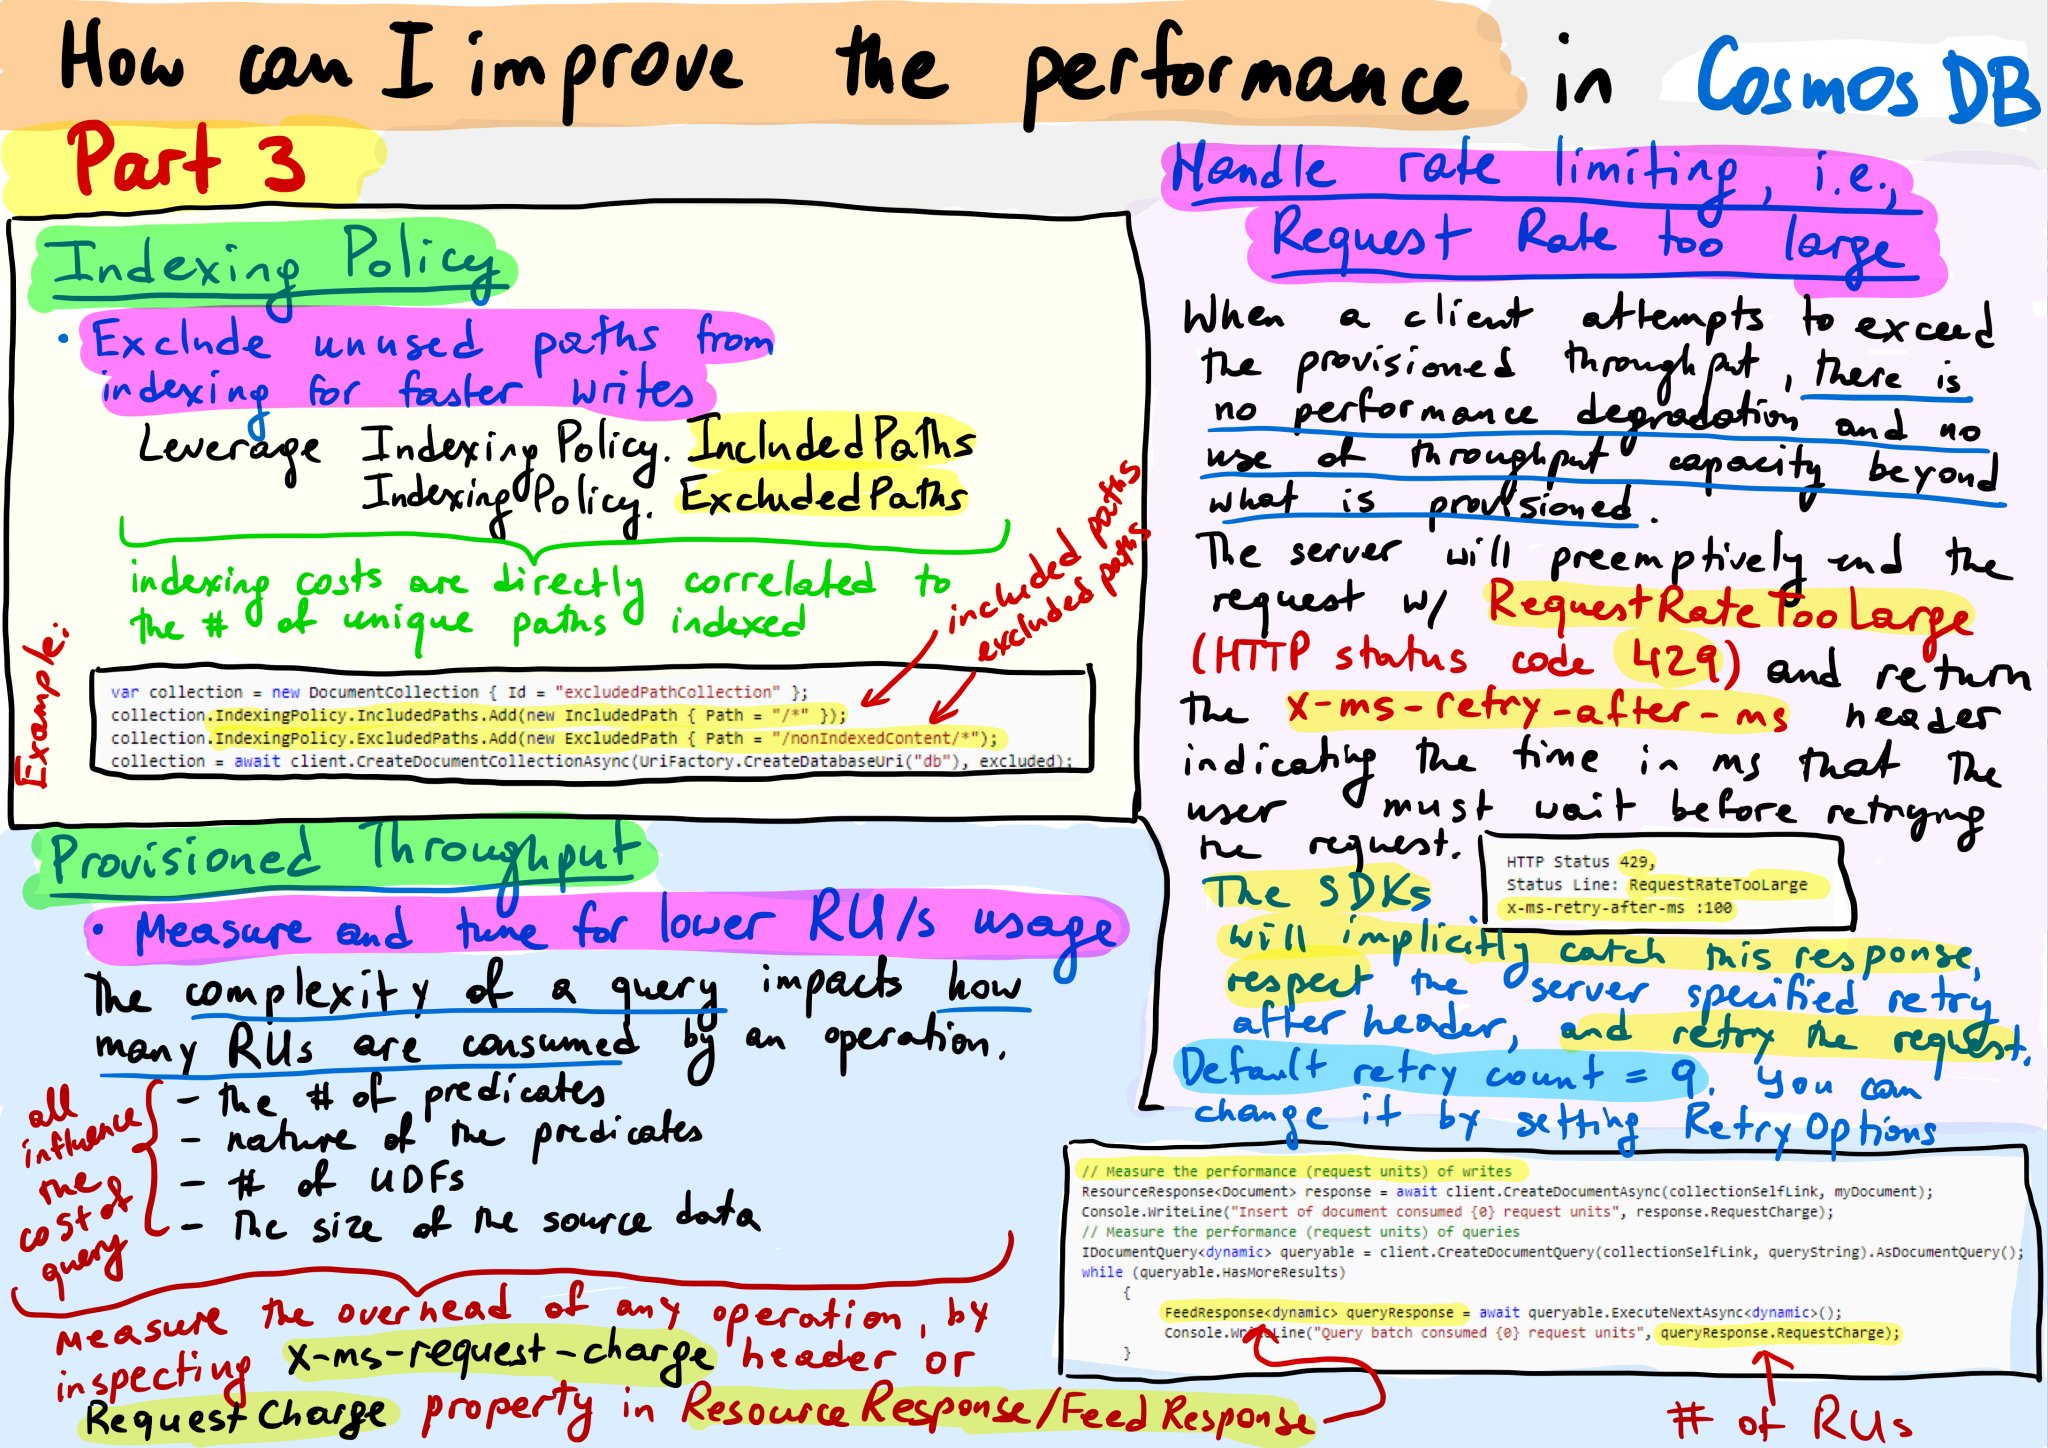 How can I improve the performance in Cosmos DB
Part 3
Indexing Policy
• Exclude unused paths from
indexing for faster writes
Leverage IndexingPolicy. IncludedPaths
IndexingPolicy. ExcludedPaths
indexing costs are directly correlated to
the # of unique paths indexed
included paths
excluded paths
Example:
var collection = new DocumentCollection { Id = "excludedPathCollection" };
collection.IndexingPolicy.IncludedPaths.Add(new IncludedPath { Path = "/*" });
collection.IndexingPolicy.ExcludedPaths.Add(new ExcludedPath { Path = "/nonIndexedContent/*");
collection = await client.CreateDocumentCollectionAsync(UriFactory.CreateDatabaseUri("db"), excluded);
Provisioned Throughput
• Measure and tune for lower RU/s usage
The complexity of a query impacts how
many RUs are consumed by an operation.
- the # of predicates
- nature of the predicates
- # of UDFs
- the size of the source data
all
influence
the
cost of
query
Measure the overhead of any operation, by
inspecting x-ms-request-charge header or
RequestCharge property in ResourceResponse/FeedResponse
Handle rate limiting, i.e.,
Request Rate too large
When a client attempts to exceed
the provisioned throughput, there is
no performance degradation and no
use of throughput capacity beyond
what is provisioned.
The server will preemptively end the
request w/ RequestRateTooLarge
(HTTP status code 429) and return
the x-ms-retry-after-ms header
indicating the time in ms that the
user must wait before retrying
the request.
HTTP Status 429,
Status Line: RequestRateTooLarge
x-ms-retry-after-ms :100
The SDKs
will implicitly catch this response,
respect the server specified retry
after header, and retry the request.
Default retry count = 9. You can
change it by setting RetryOptions
// Measure the performance (request units) of writes
ResourceResponse<Document> response = await client.CreateDocumentAsync(collectionSelfLink, myDocument);
Console.WriteLine("Insert of document consumed {0} request units", response.RequestCharge);
// Measure the performance (request units) of queries
IDocumentQuery<dynamic> queryable = client.CreateDocumentQuery(collectionSelfLink, queryString).AsDocumentQuery();
while (queryable.HasMoreResults)
{
FeedResponse<dynamic> queryResponse = await queryable.ExecuteNextAsync<dynamic>();
Console.WriteLine("Query batch consumed {0} request units", queryResponse.RequestCharge);
}
# of RUs